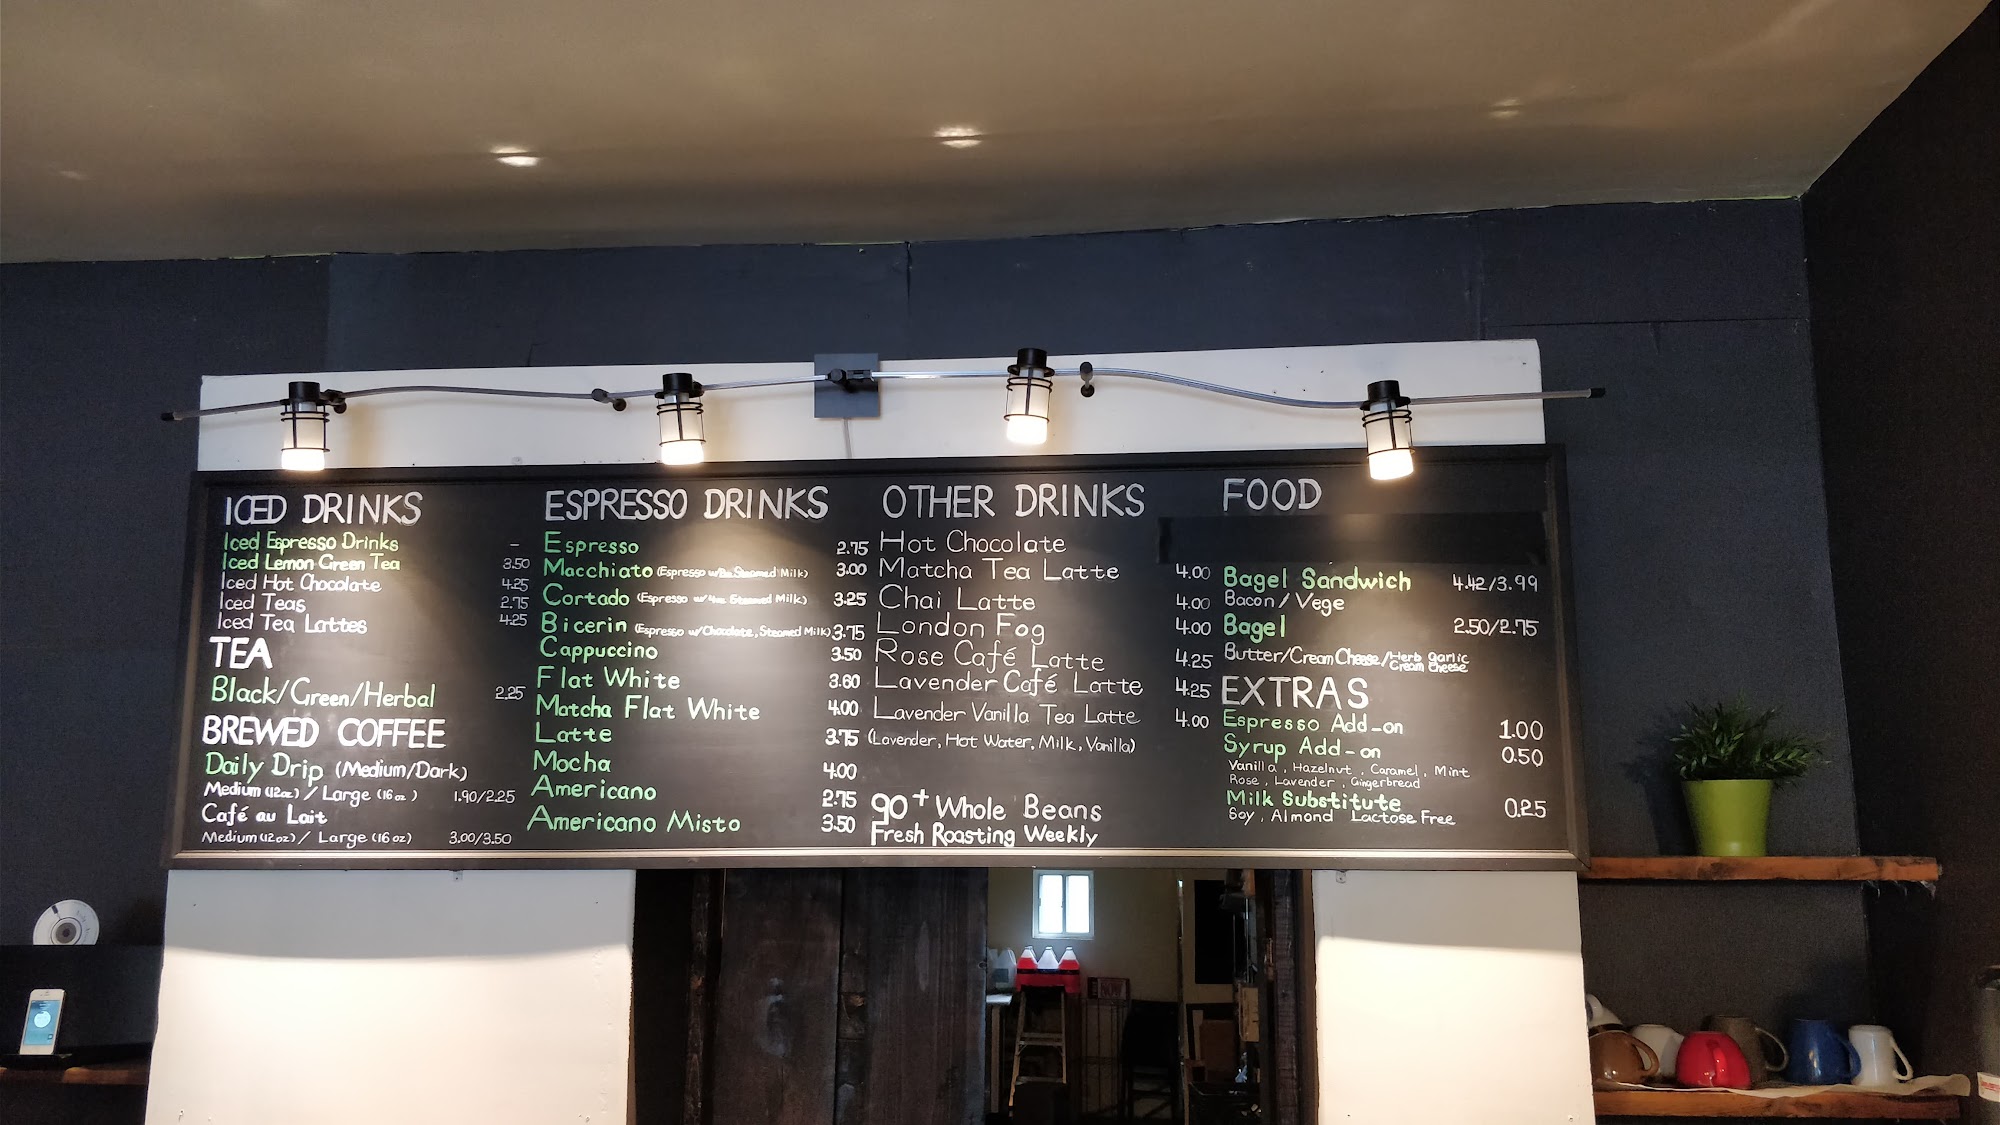 ICED DRINKS
Iced Espresso Drinks -
Iced Lemon Green Tea 3.50
Iced Hot Chocolate 4.25
Iced Teas 2.75
Iced Tea Lattes 4.25
TEA
Black/Green/Herbal 2.25
BREWED COFFEE
Daily Drip (Medium/Dark)
Medium (12oz) / Large (16oz) 1.90/2.25
Café au Lait
Medium (12oz) / Large (16oz) 3.00/3.50
ESPRESSO DRINKS
Espresso 2.75
Macchiato (Espresso w/ Steamed Milk) 3.00
Cortado (Espresso w/ Steamed Milk) 3.25
Bicerin (Espresso w/Chocolate, Steamed Milk) 3.75
Cappuccino 3.50
Flat White 3.60
Matcha Flat White 4.00
Latte 3.75
Mocha 4.00
Americano 2.75
Americano Misto 3.50
OTHER DRINKS
Hot Chocolate
Matcha Tea Latte 4.00
Chai Latte 4.00
London Fog 4.00
Rose Café Latte 4.25
Lavender Café Latte 4.25
Lavender Vanilla Tea Latte 4.00
(Lavender, Hot Water, Milk, Vanilla)
90+ Whole Beans
Fresh Roasting Weekly
FOOD
Bagel Sandwich 4.42/3.99
Bacon/Vege
Bagel 2.50/2.75
Butter/Cream Cheese/Herb Garlic Cream Cheese
EXTRAS
Espresso Add-on 1.00
Syrup Add-on 0.50
Vanilla, Hazelnut, Caramel, Mint
Rose, Lavender, Gingerbread
Milk Substitute 0.25
Soy, Almond Lactose Free